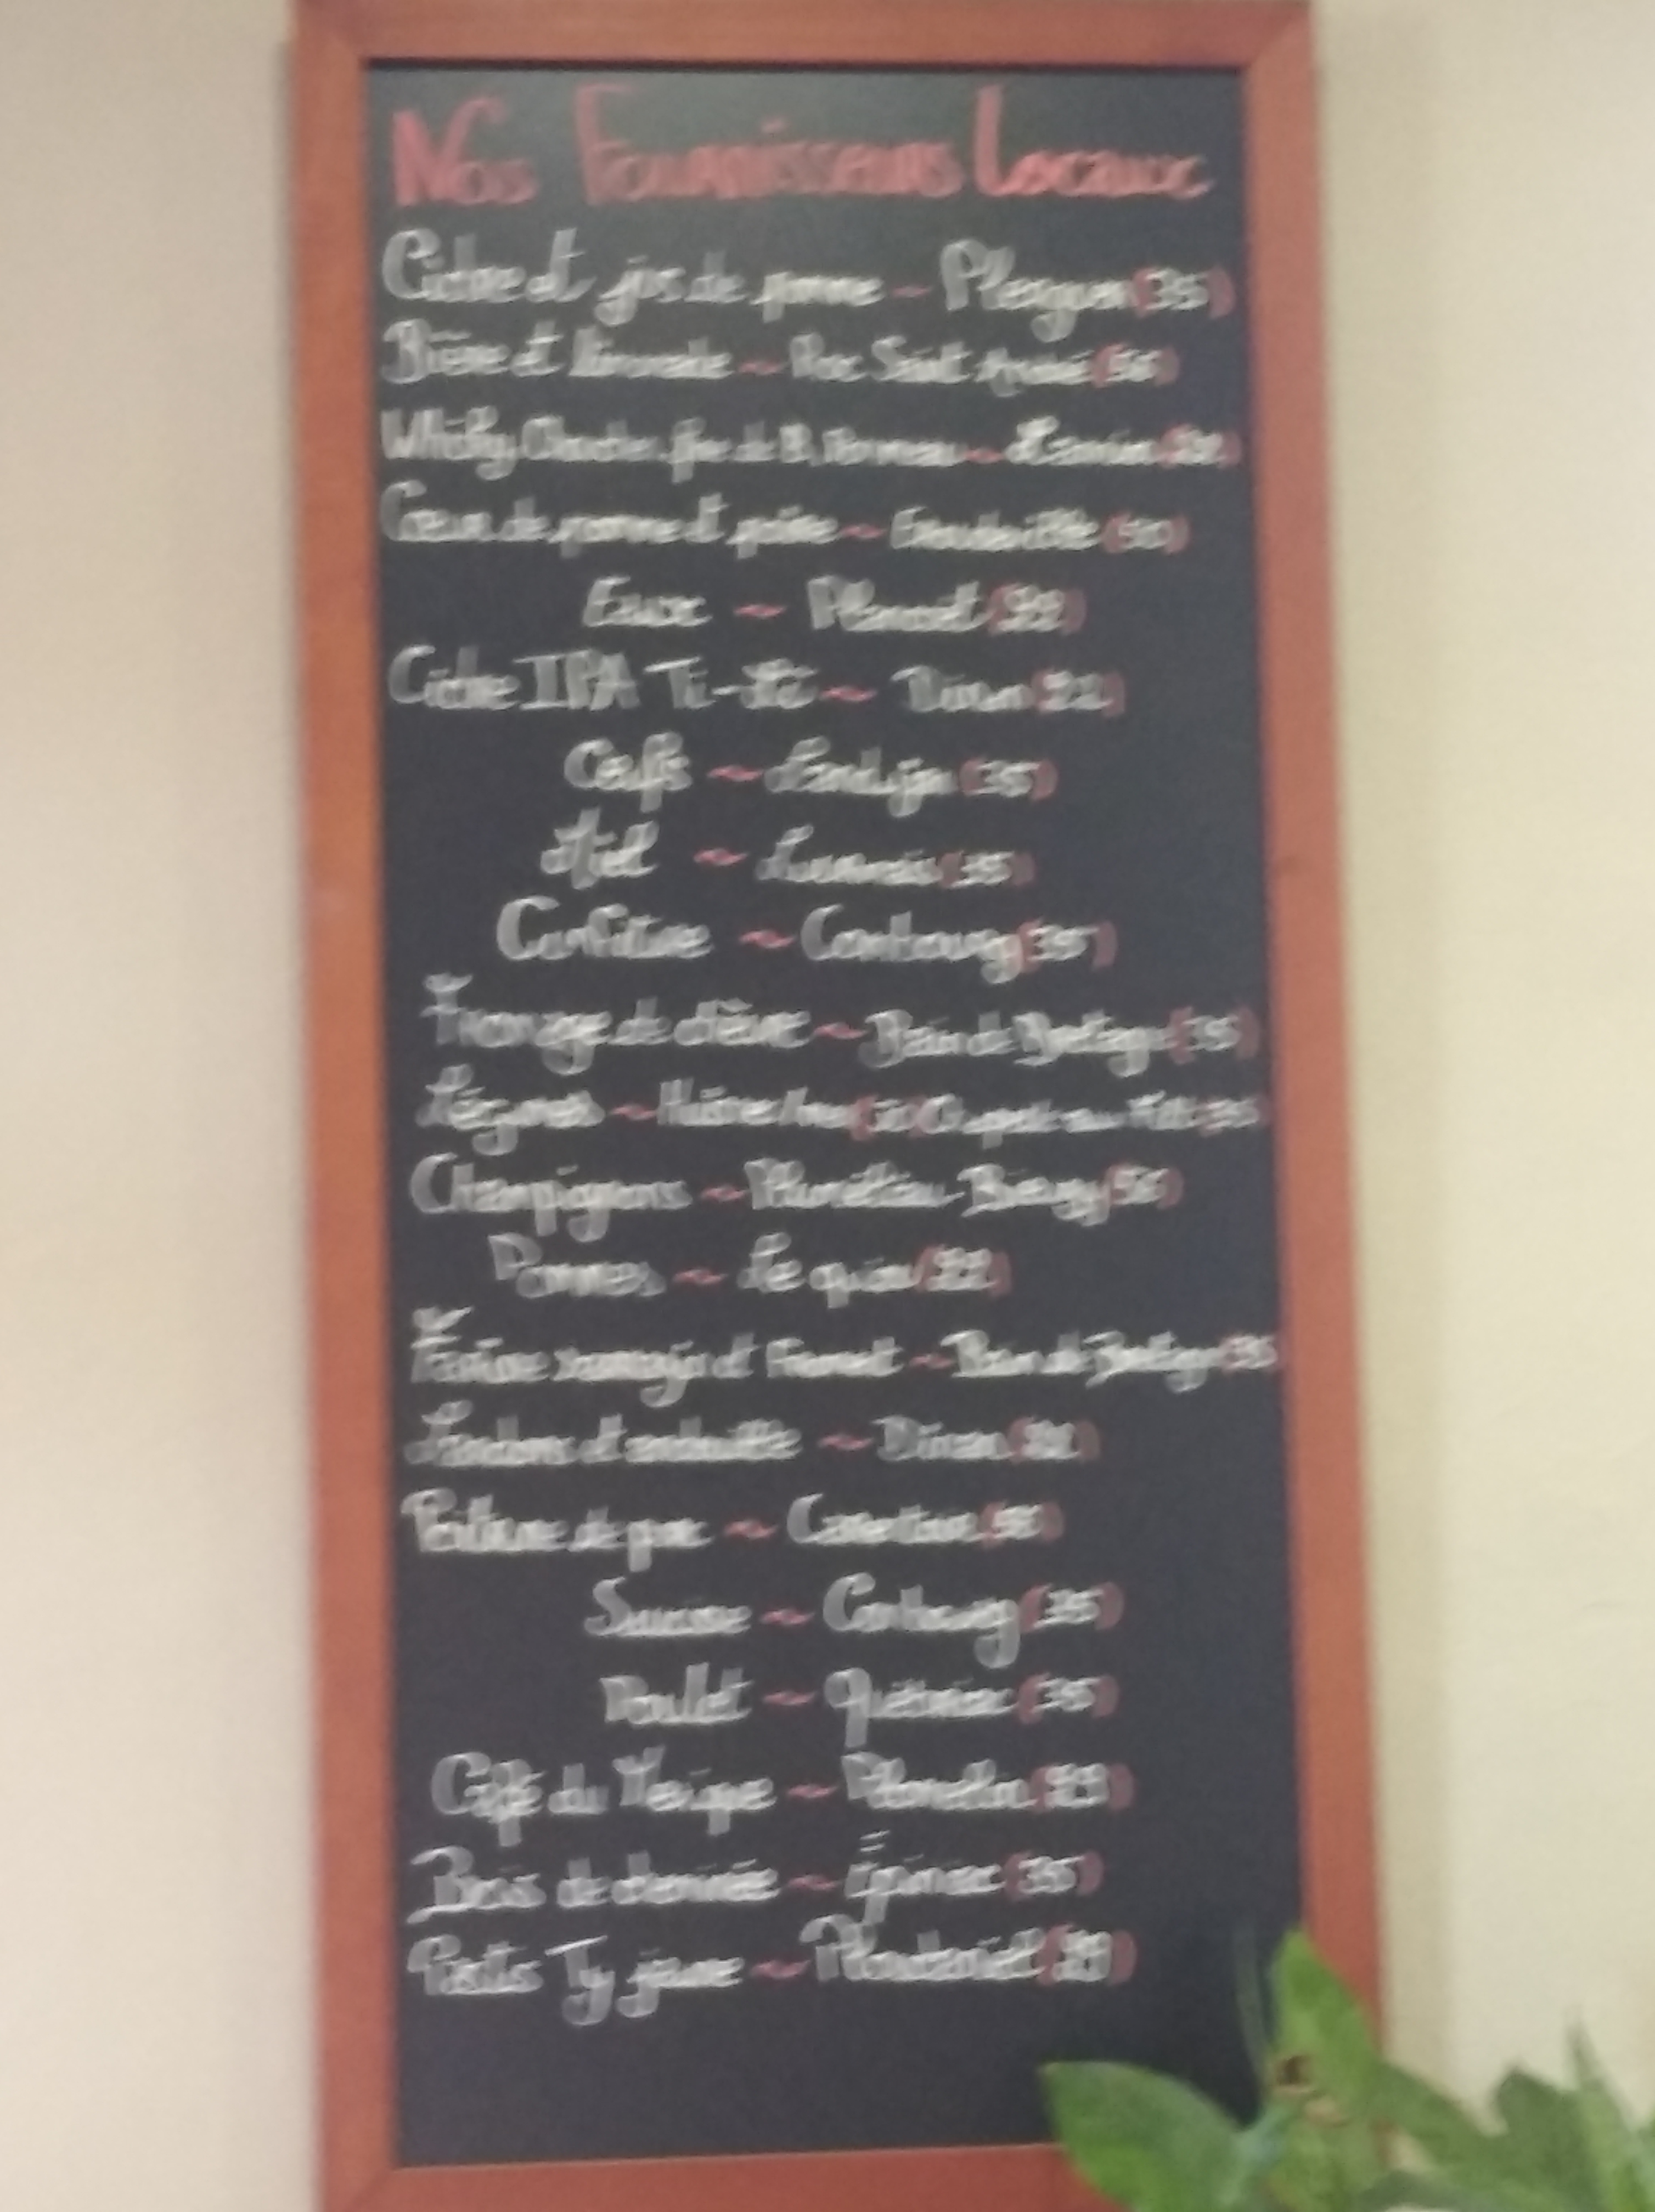 Nos Fournisseurs Locaux
Cidre et jus de pomme ~ Plerguer (35)
Bière et limonade ~ Roc Saint André (56)
Whisky, Chouchen, fine de B, Pommeau ~ (22)
Coeur de pomme et poire ~ (50)
Eaux ~ Plancoët (22)
Cidre IPA Ti- ~ Dinan (22)
Oeufs ~ (35)
Miel ~ (35)
Confiture ~ Combourg (35)
Fromage de chèvre ~ Bain de Bretagne (35)
Légumes ~ (35)
Champignons ~ Pluméliau-Bieuzy (56)
Pommes ~ Le Quiou (22)
Farine sarrasin et Froment ~ Bain de Bretagne (35
Lardons et andouille ~ Dinan (22)
Poitrine de porc ~ (56)
Saucisse ~ Combourg (35)
Poulet ~ Québriac (35)
Café du Mexique ~ Plomelin (29)
Bois de cheminée ~ Epiniac (35)
Pastis Ty jaune ~ Ploudaniel (29)